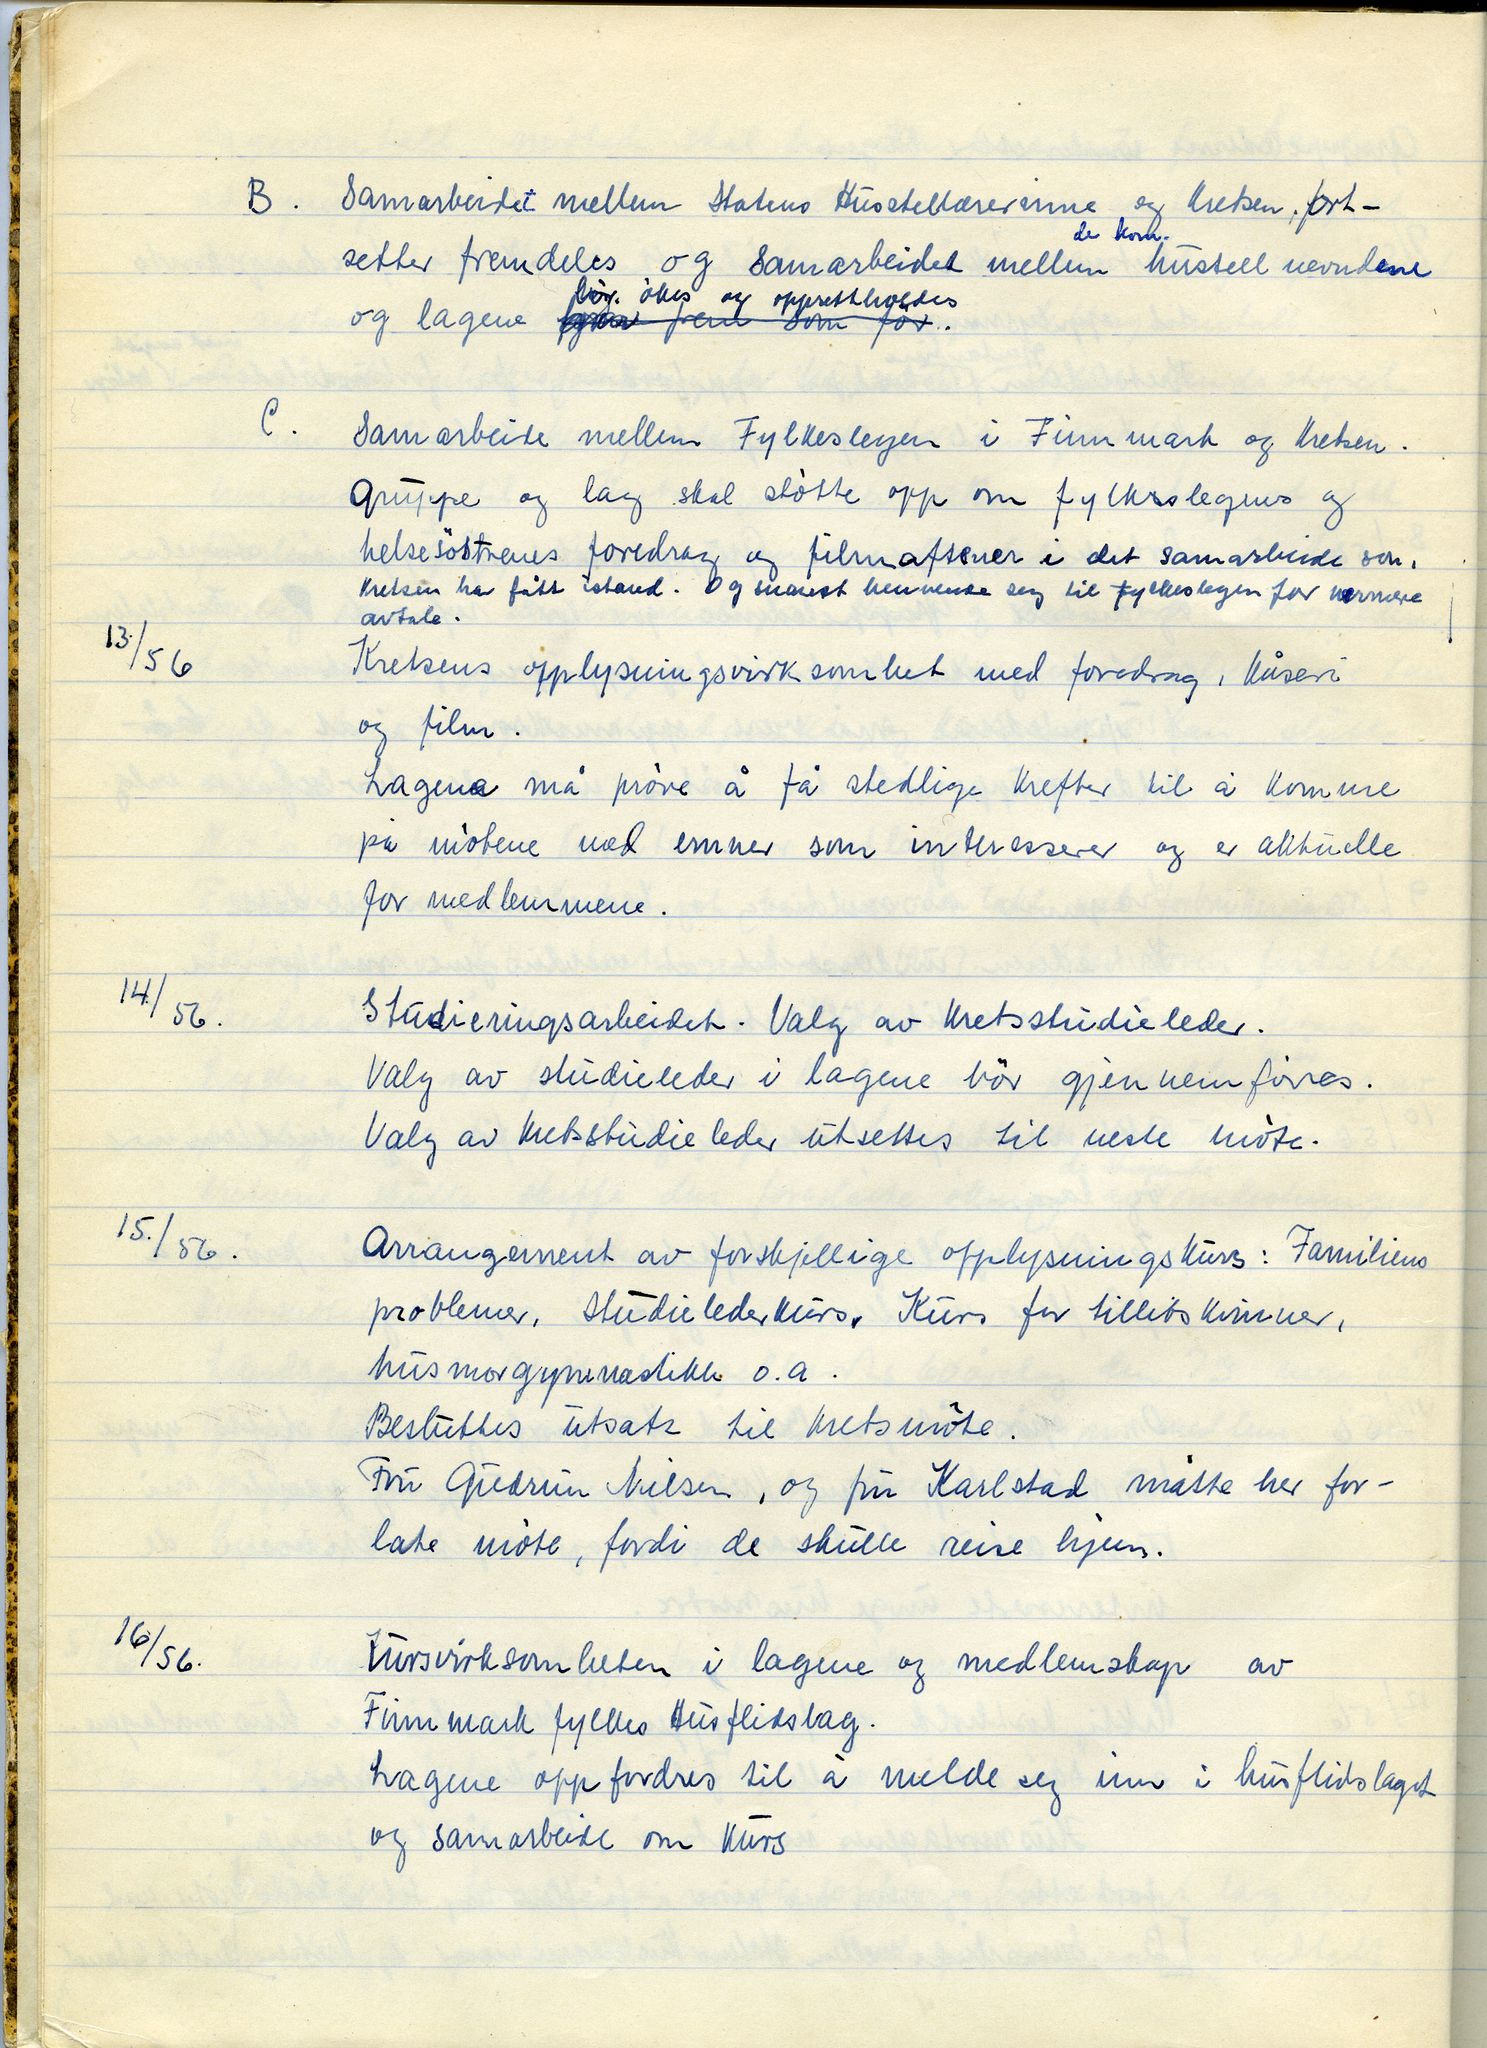 B. Samarbeidet mellem Statens Husstellærerinne og Kretsen, fort-
setter fremdeles og Samarbeidet mellem de kom. hustell nevndene
og lagene bör ökes og opprettholdes frem som för.
C. Samarbeide mellem Fylkeslegen i Finnmark og Kretsen.
Gruppe og lag skal støtte opp om fylkeslegens og
helsesöstrenes foredrag og filmaftener i det samarbeide som
Kretsen har fått istand. Og snarest henvende seg til Fylkeslegen for nærmere
avtale.
13./56 Kretsens opplysningsvirksomhet med foredrag, kåseri
og film.
Lagene må pröve å få stedlige krefter til å komme
på mötene med emner som interesserer og er aktuelle
for medlemmene.
14./56. Studieringsarbeidet. Valg av Kretsstudieleder.
Valg av studieleder i lagene bör gjennemföres.
Valg av Kretsstudieleder utsettes til neste möte.
15./56. Arrangement av forskjellige opplysningskurs: Familiens
problemer, Studielederkurs, Kurs for tillitskvinner,
husmorgymnastikk o.a.
Besluttes utsatt til Kretsmöte.
Fru Gudrun Nilsen, og fru Karlstad måtte her for-
late möte, fordi de skulle reise hjem.
16/56. Kursvirksomheten i lagene og medlemskap av
Finnmark fylkes Husflidslag.
Lagene oppfordres til å melde seg inn i husflidslaget
og samarbeide om kurs